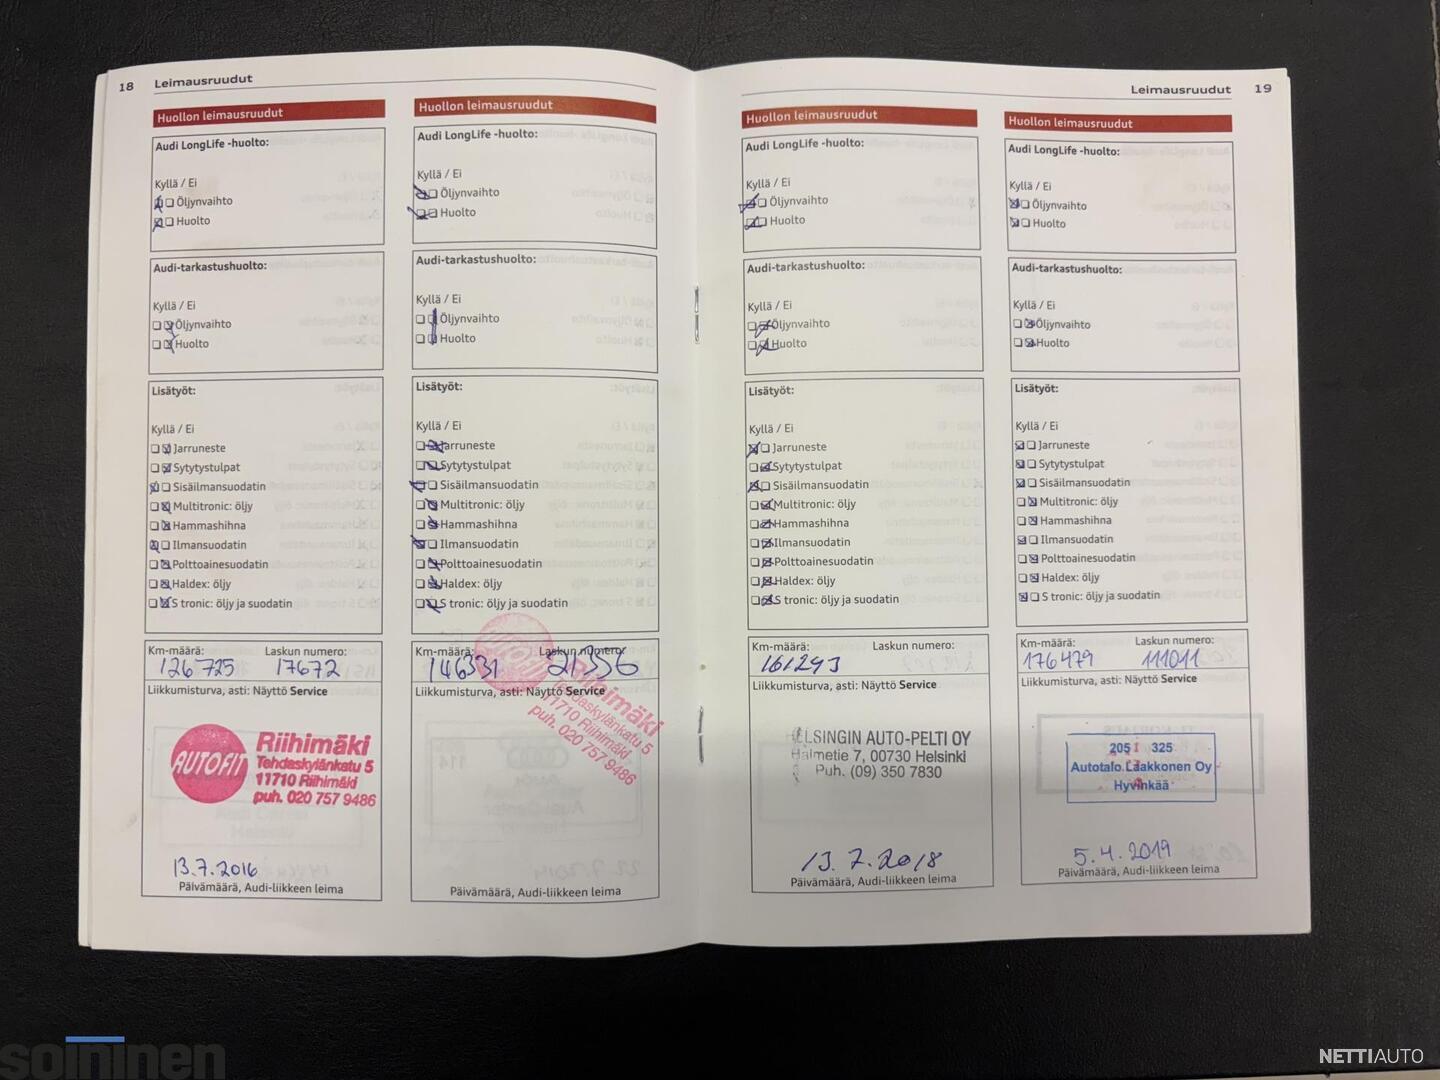 18 Leimausruudut
Huollon leimausruudut
Audi LongLife -huolto:
Kyllä / Ei
Öljynvaihto
Huolto
Audi-tarkastushuolto:
Kyllä / Ei
Öljynvaihto
Huolto
Lisätyöt:
Kyllä / Ei
Jarruneste
Sytytystulpat
Sisäilmansuodatin
Multitronic: öljy
Hammashihna
Ilmansuodatin
Polttoainesuodatin
Haldex: öljy
S tronic: öljy ja suodatin
Km-määrä: Laskun numero:
126725 17672
Liikkumisturva, asti: Näyttö Service
AUTOFIT
Riihimäki
Tehdaskylänkatu 5
11710 Riihimäki
puh. 020 757 9486
13.7.2016
Päivämäärä, Audi-liikkeen leima
Huollon leimausruudut
Audi LongLife -huolto:
Kyllä / Ei
Öljynvaihto
Huolto
Audi-tarkastushuolto:
Kyllä / Ei
Öljynvaihto
Huolto
Lisätyöt:
Kyllä / Ei
Jarruneste
Sytytystulpat
Sisäilmansuodatin
Multitronic: öljy
Hammashihna
Ilmansuodatin
Polttoainesuodatin
Haldex: öljy
S tronic: öljy ja suodatin
Km-määrä: Laskun numero:
146331 21336
Liikkumisturva, asti: Näyttö Service
Riihimäki
Tehdaskylänkatu 5
11710 Riihimäki
puh. 020 757 9486
Päivämäärä, Audi-liikkeen leima
Leimausruudut 19
Huollon leimausruudut
Audi LongLife -huolto:
Kyllä / Ei
Öljynvaihto
Huolto
Audi-tarkastushuolto:
Kyllä / Ei
Öljynvaihto
Huolto
Lisätyöt:
Kyllä / Ei
Jarruneste
Sytytystulpat
Sisäilmansuodatin
Multitronic: öljy
Hammashihna
Ilmansuodatin
Polttoainesuodatin
Haldex: öljy
S tronic: öljy ja suodatin
Km-määrä: Laskun numero:
161293
Liikkumisturva, asti: Näyttö Service
HELSINGIN AUTO-PELTI OY
Halmetie 7, 00730 Helsinki
Puh. (09) 350 7830
13.7.2018
Päivämäärä, Audi-liikkeen leima
Huollon leimausruudut
Audi LongLife -huolto:
Kyllä / Ei
Öljynvaihto
Huolto
Audi-tarkastushuolto:
Kyllä / Ei
Öljynvaihto
Huolto
Lisätyöt:
Kyllä / Ei
Jarruneste
Sytytystulpat
Sisäilmansuodatin
Multitronic: öljy
Hammashihna
Ilmansuodatin
Polttoainesuodatin
Haldex: öljy
S tronic: öljy ja suodatin
Km-määrä: Laskun numero:
176479 111011
Liikkumisturva, asti: Näyttö Service
2051 325
Autotalo Laakkonen Oy
Hyvinkää
5.4.2019
Päivämäärä, Audi-liikkeen leima
soininen
NETTIAUTO